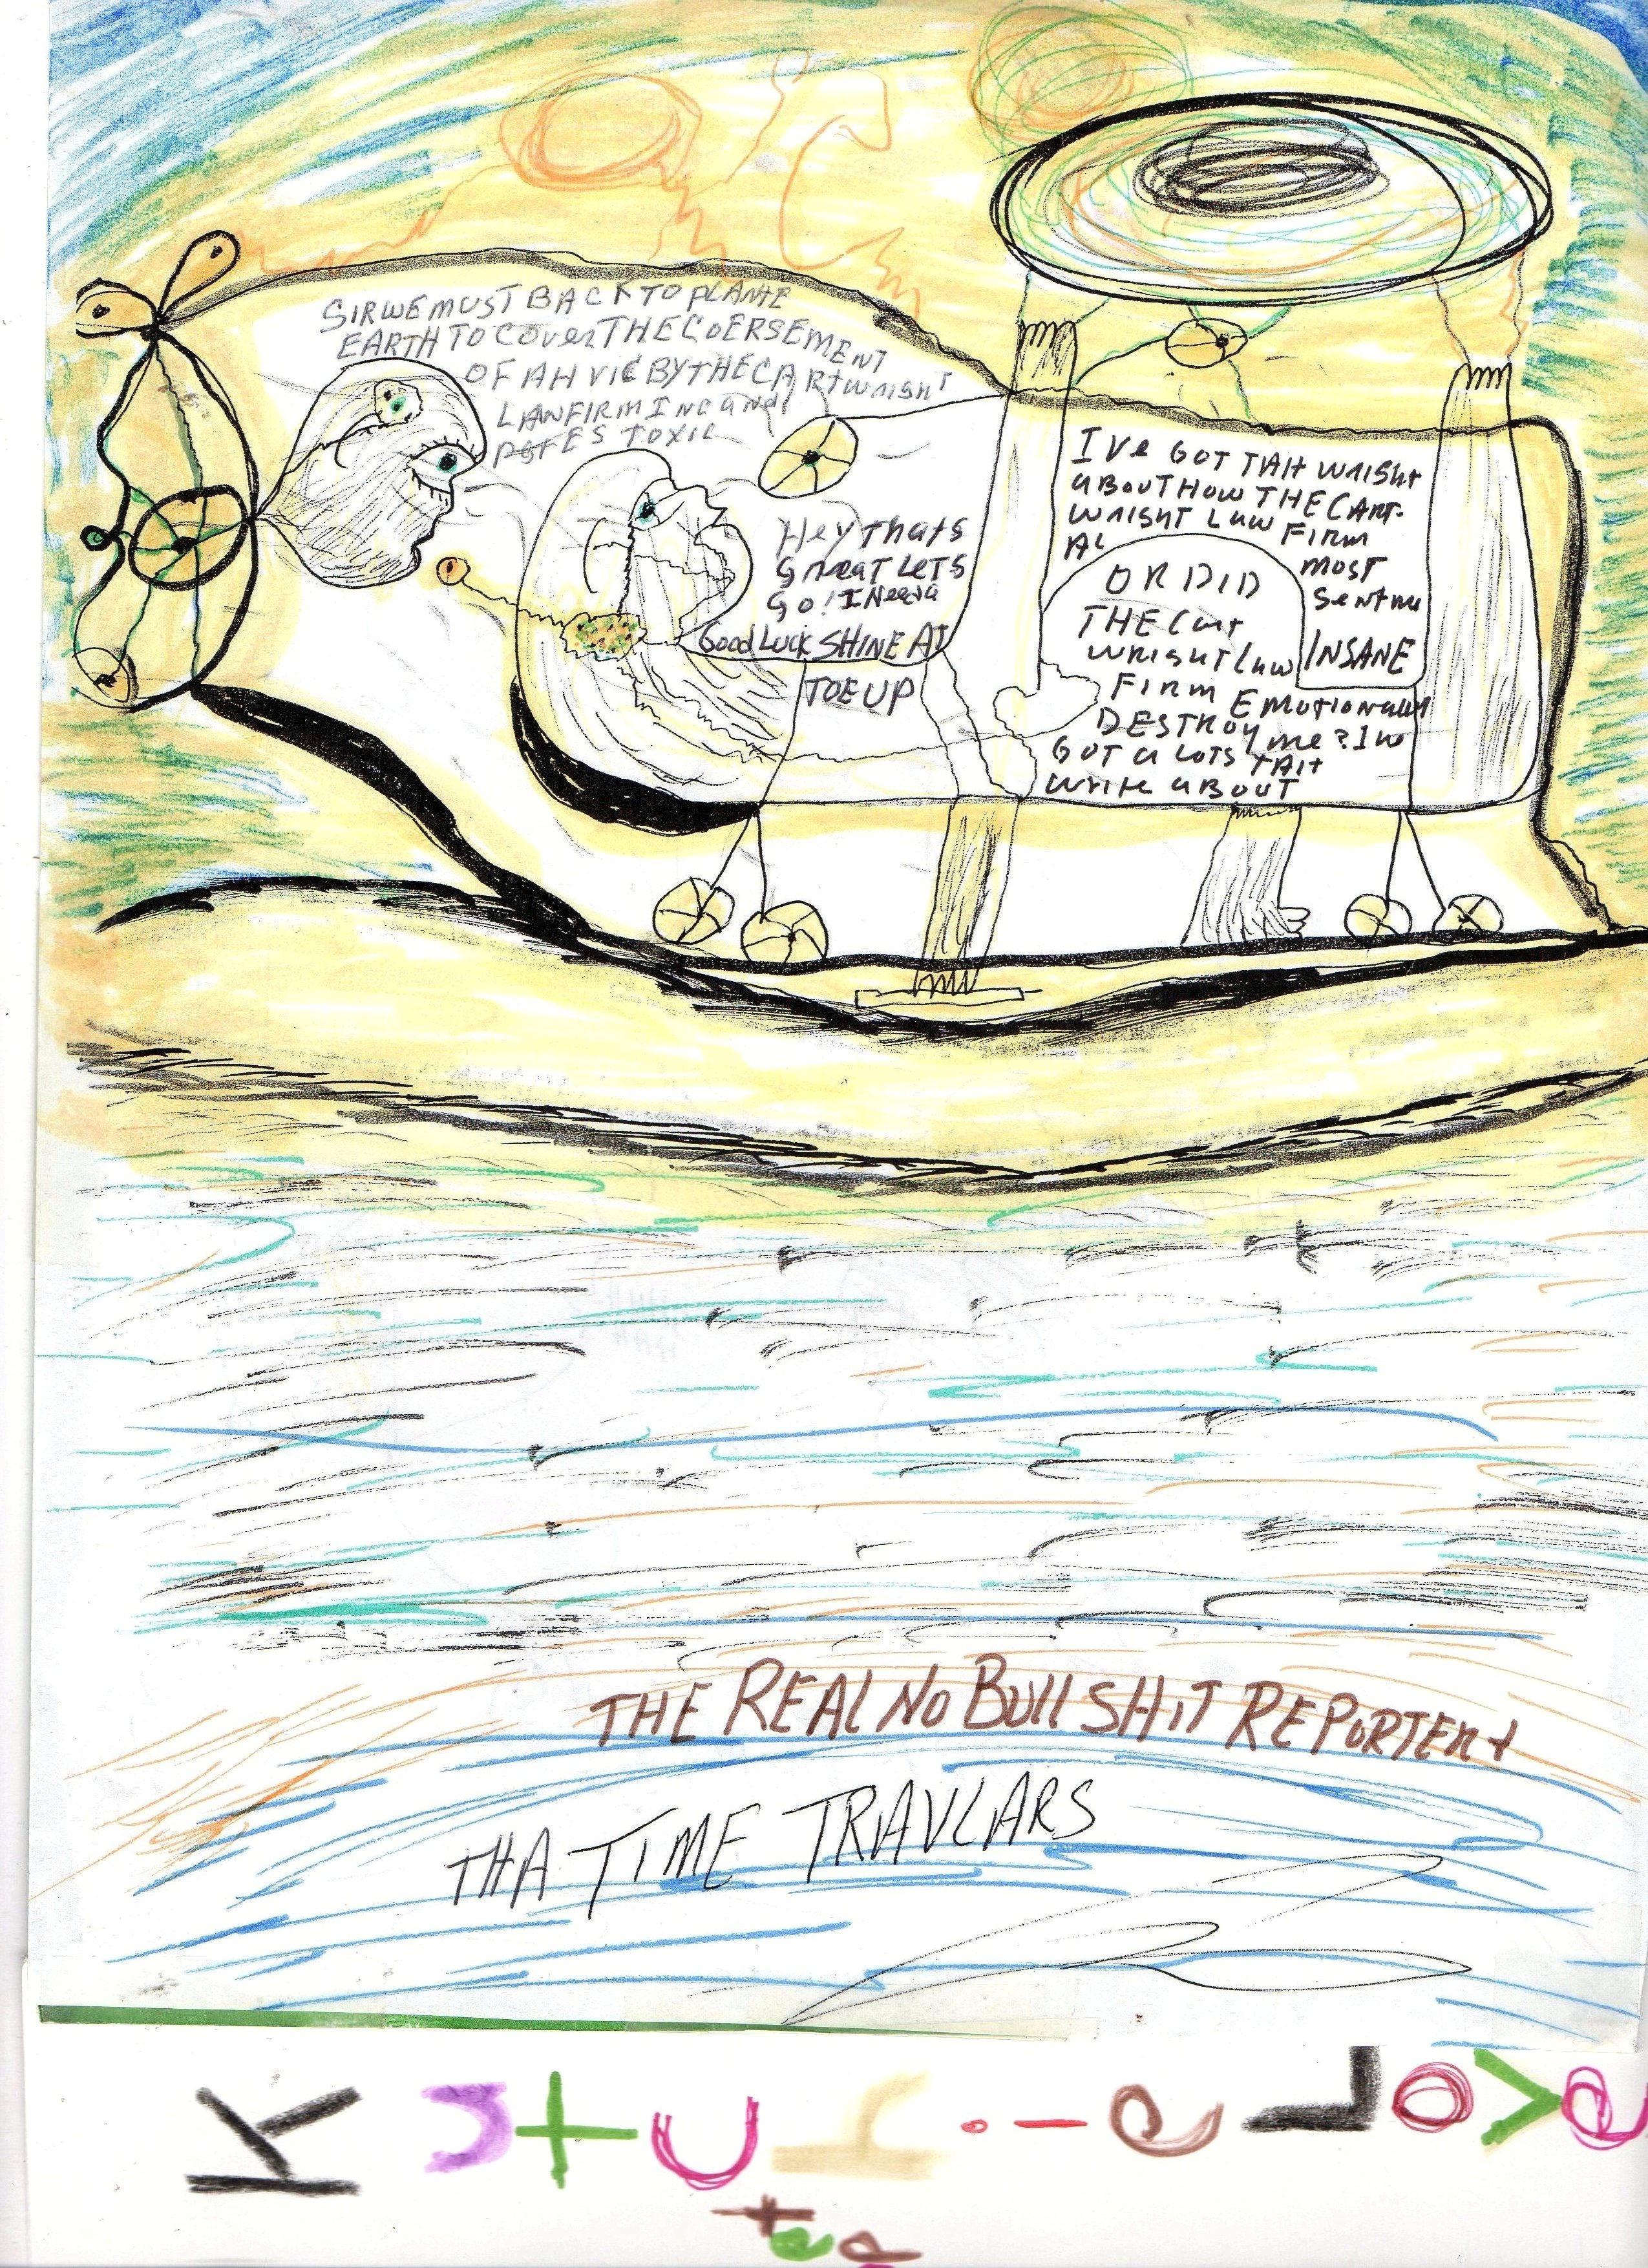 SIR WE MUST BACK TO PLANTE
EARTH TO COVER THE COERSEMENT
OF AH VIC BY THE CARTWRIGHT
LAWFIRM INC AND
TOXIC
Hey THATS
GREAT LETS
GO! I Need a
Good Luck SHINE AT
TOE UP
I Ve GOT TAH WRIGHT
ABOUT HOW THE CART-
WRIGHT LAW FIRM
AL
MOST
Sent me
INSANE
OR DID
THE CART
WRIGHT LAW
FIRM EMOTIONALLY
DESTROY me? I
GOT A LOTS TAH
WRITE ABOUT
THE REAL NO BULL SHIT REPORTER +
THA TIME TRAVLARS